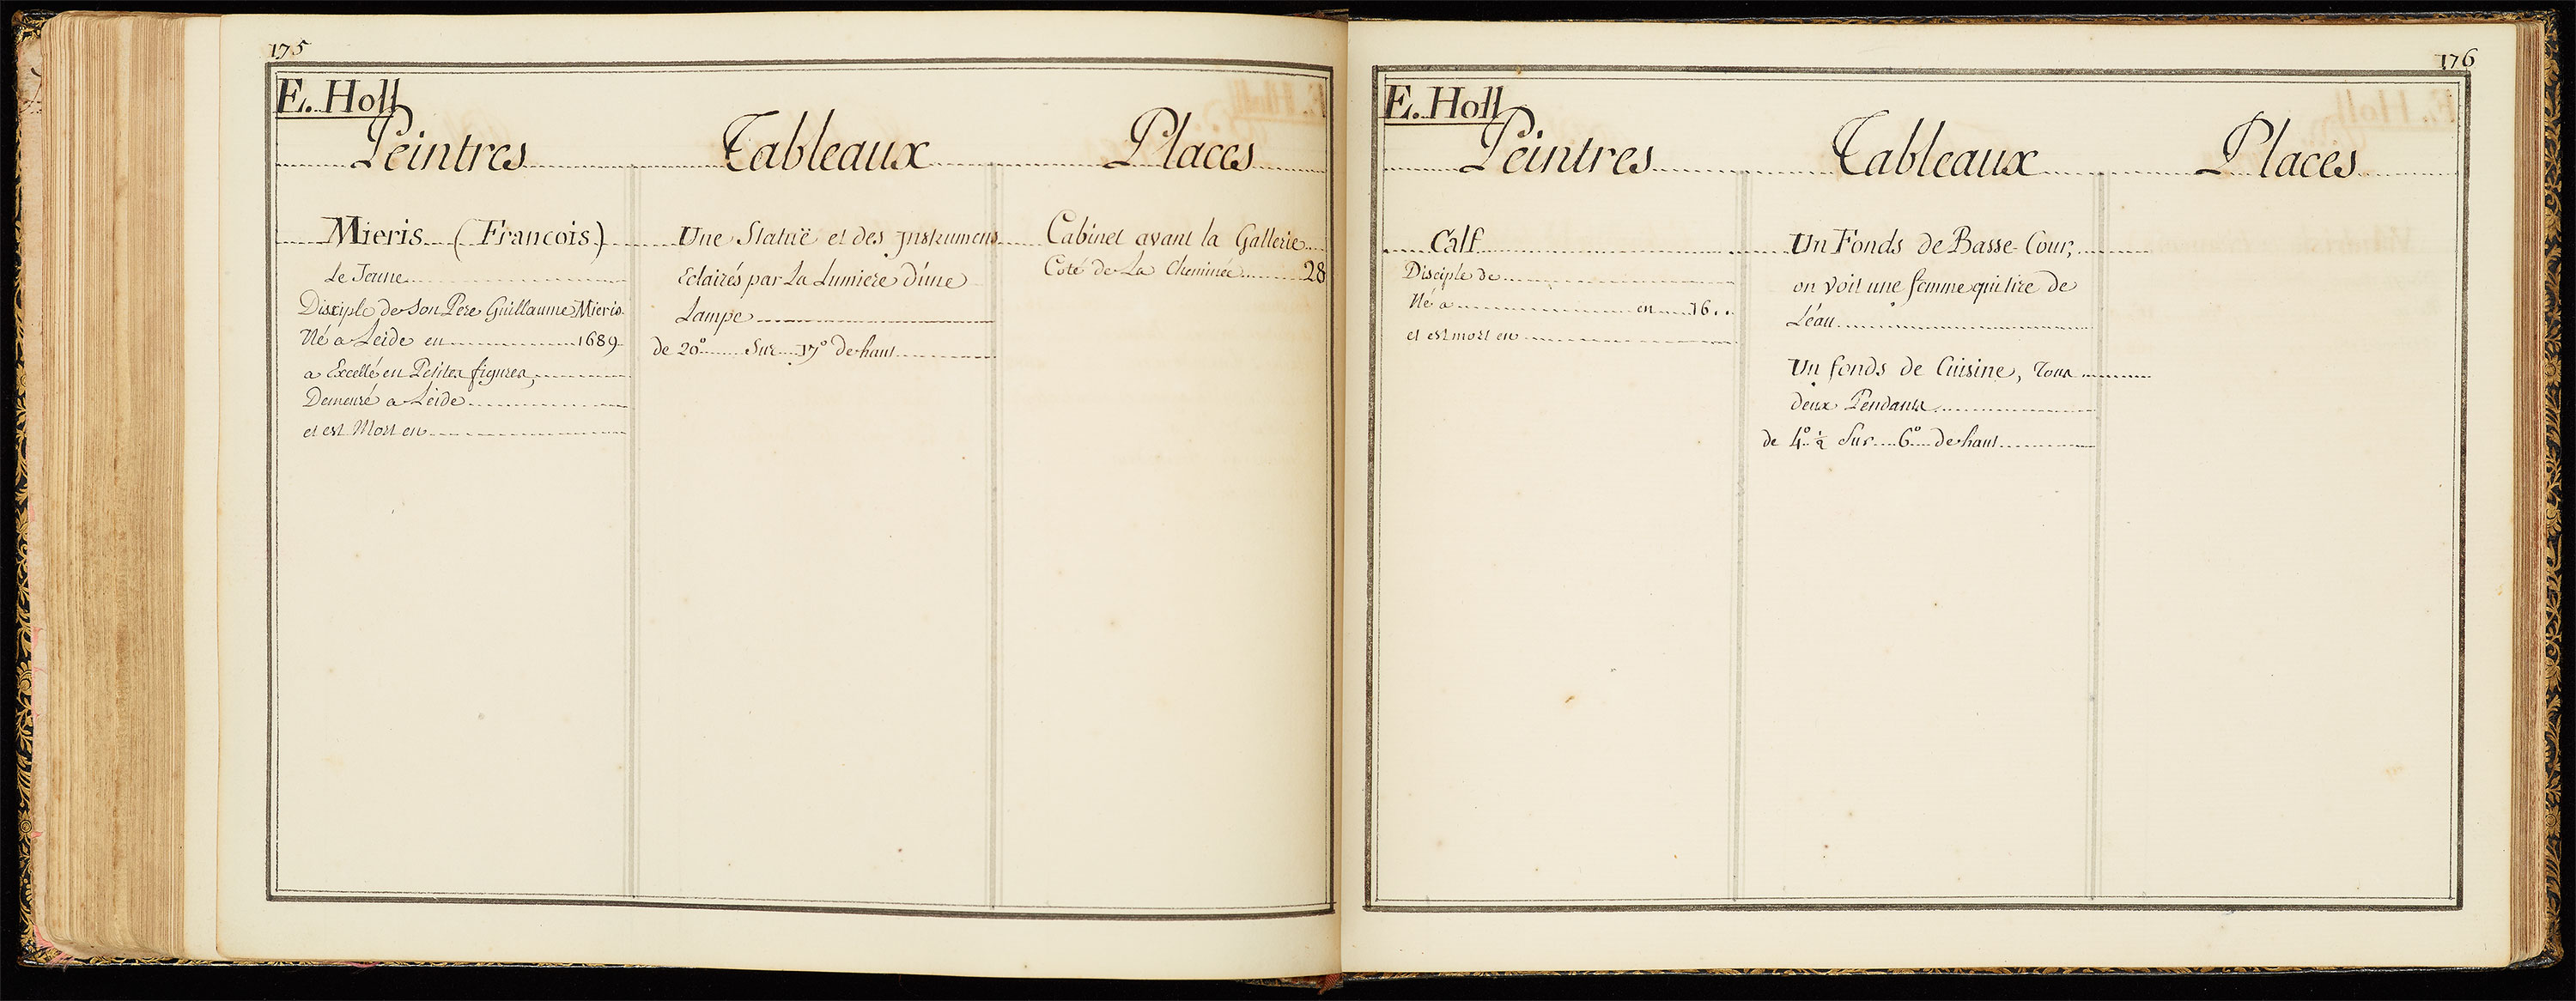 175
E. Holl
Peintres Tableaux Places
Mieris (Francois)
Le Jeune
Disciple de Son Pere Guillaume Mieris
Né a Leide en 1689
a Excellé en Petites figures,
Demeuré a Leide
et est Mort en
Une Statuë et des Instrumens
Eclairés par La Lumiere d'une
Lampe
de 20° Sur 17° de haut
Cabinet avant la Gallerie
Coté de La Cheminée 28
176
E. Holl
Peintres Tableaux Places
Calf
Disciple de
Né a en 16..
et est mort en
Un Fonds de Basse Cour,
on voit une femme qui tire de
L'éau
Un fonds de Cuisine, Tous
deux Pendants
de 4° ½ Sur 6° de haut